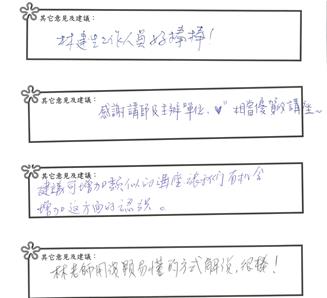 其它意見及建議：
工作人員好棒棒！
其它意見及建議：
感謝講師及主辦單位、♥" 相當優質的講座~
其它意見及建議：
建議可增加類似的講座讓我們有機會
增加這方面的認識。
其它意見及建議：
林老師用淺顯易懂的方式解說，很棒！